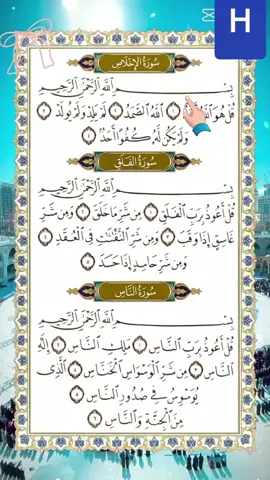 H
سُورَةُ الإِخْلَاصِ
بِسْمِ اللَّهِ الرَّحْمَٰنِ الرَّحِيمِ
قُلْ هُوَ اللَّهُ ١ اللَّهُ الصَّمَدُ ٢ لَمْ يَلِدْ وَلَمْ يُولَدْ ٣
وَلَمْ يَكُن لَّهُ كُفُوًا أَحَدٌ ٤
سُورَةُ الْفَلَقِ
بِسْمِ اللَّهِ الرَّحْمَٰنِ الرَّحِيمِ
قُلْ أَعُوذُ بِرَبِّ الْفَلَقِ ١ مِن شَرِّ مَا خَلَقَ ٢ وَمِن شَرِّ
غَاسِقٍ إِذَا وَقَبَ ٣ وَمِن شَرِّ النَّفَّاثَاتِ فِي الْعُقَدِ ٤
وَمِن شَرِّ حَاسِدٍ إِذَا حَسَدَ ٥
سُورَةُ النَّاسِ
بِسْمِ اللَّهِ الرَّحْمَٰنِ الرَّحِيمِ
قُلْ أَعُوذُ بِرَبِّ النَّاسِ ١ مَلِكِ النَّاسِ ٢ إِلَٰهِ
النَّاسِ ٣ مِن شَرِّ الْوَسْوَاسِ الْخَنَّاسِ ٤ الَّذِي
يُوَسْوِسُ فِي صُدُورِ النَّاسِ ٥
مِنَ الْجِنَّةِ وَالنَّاسِ ٦